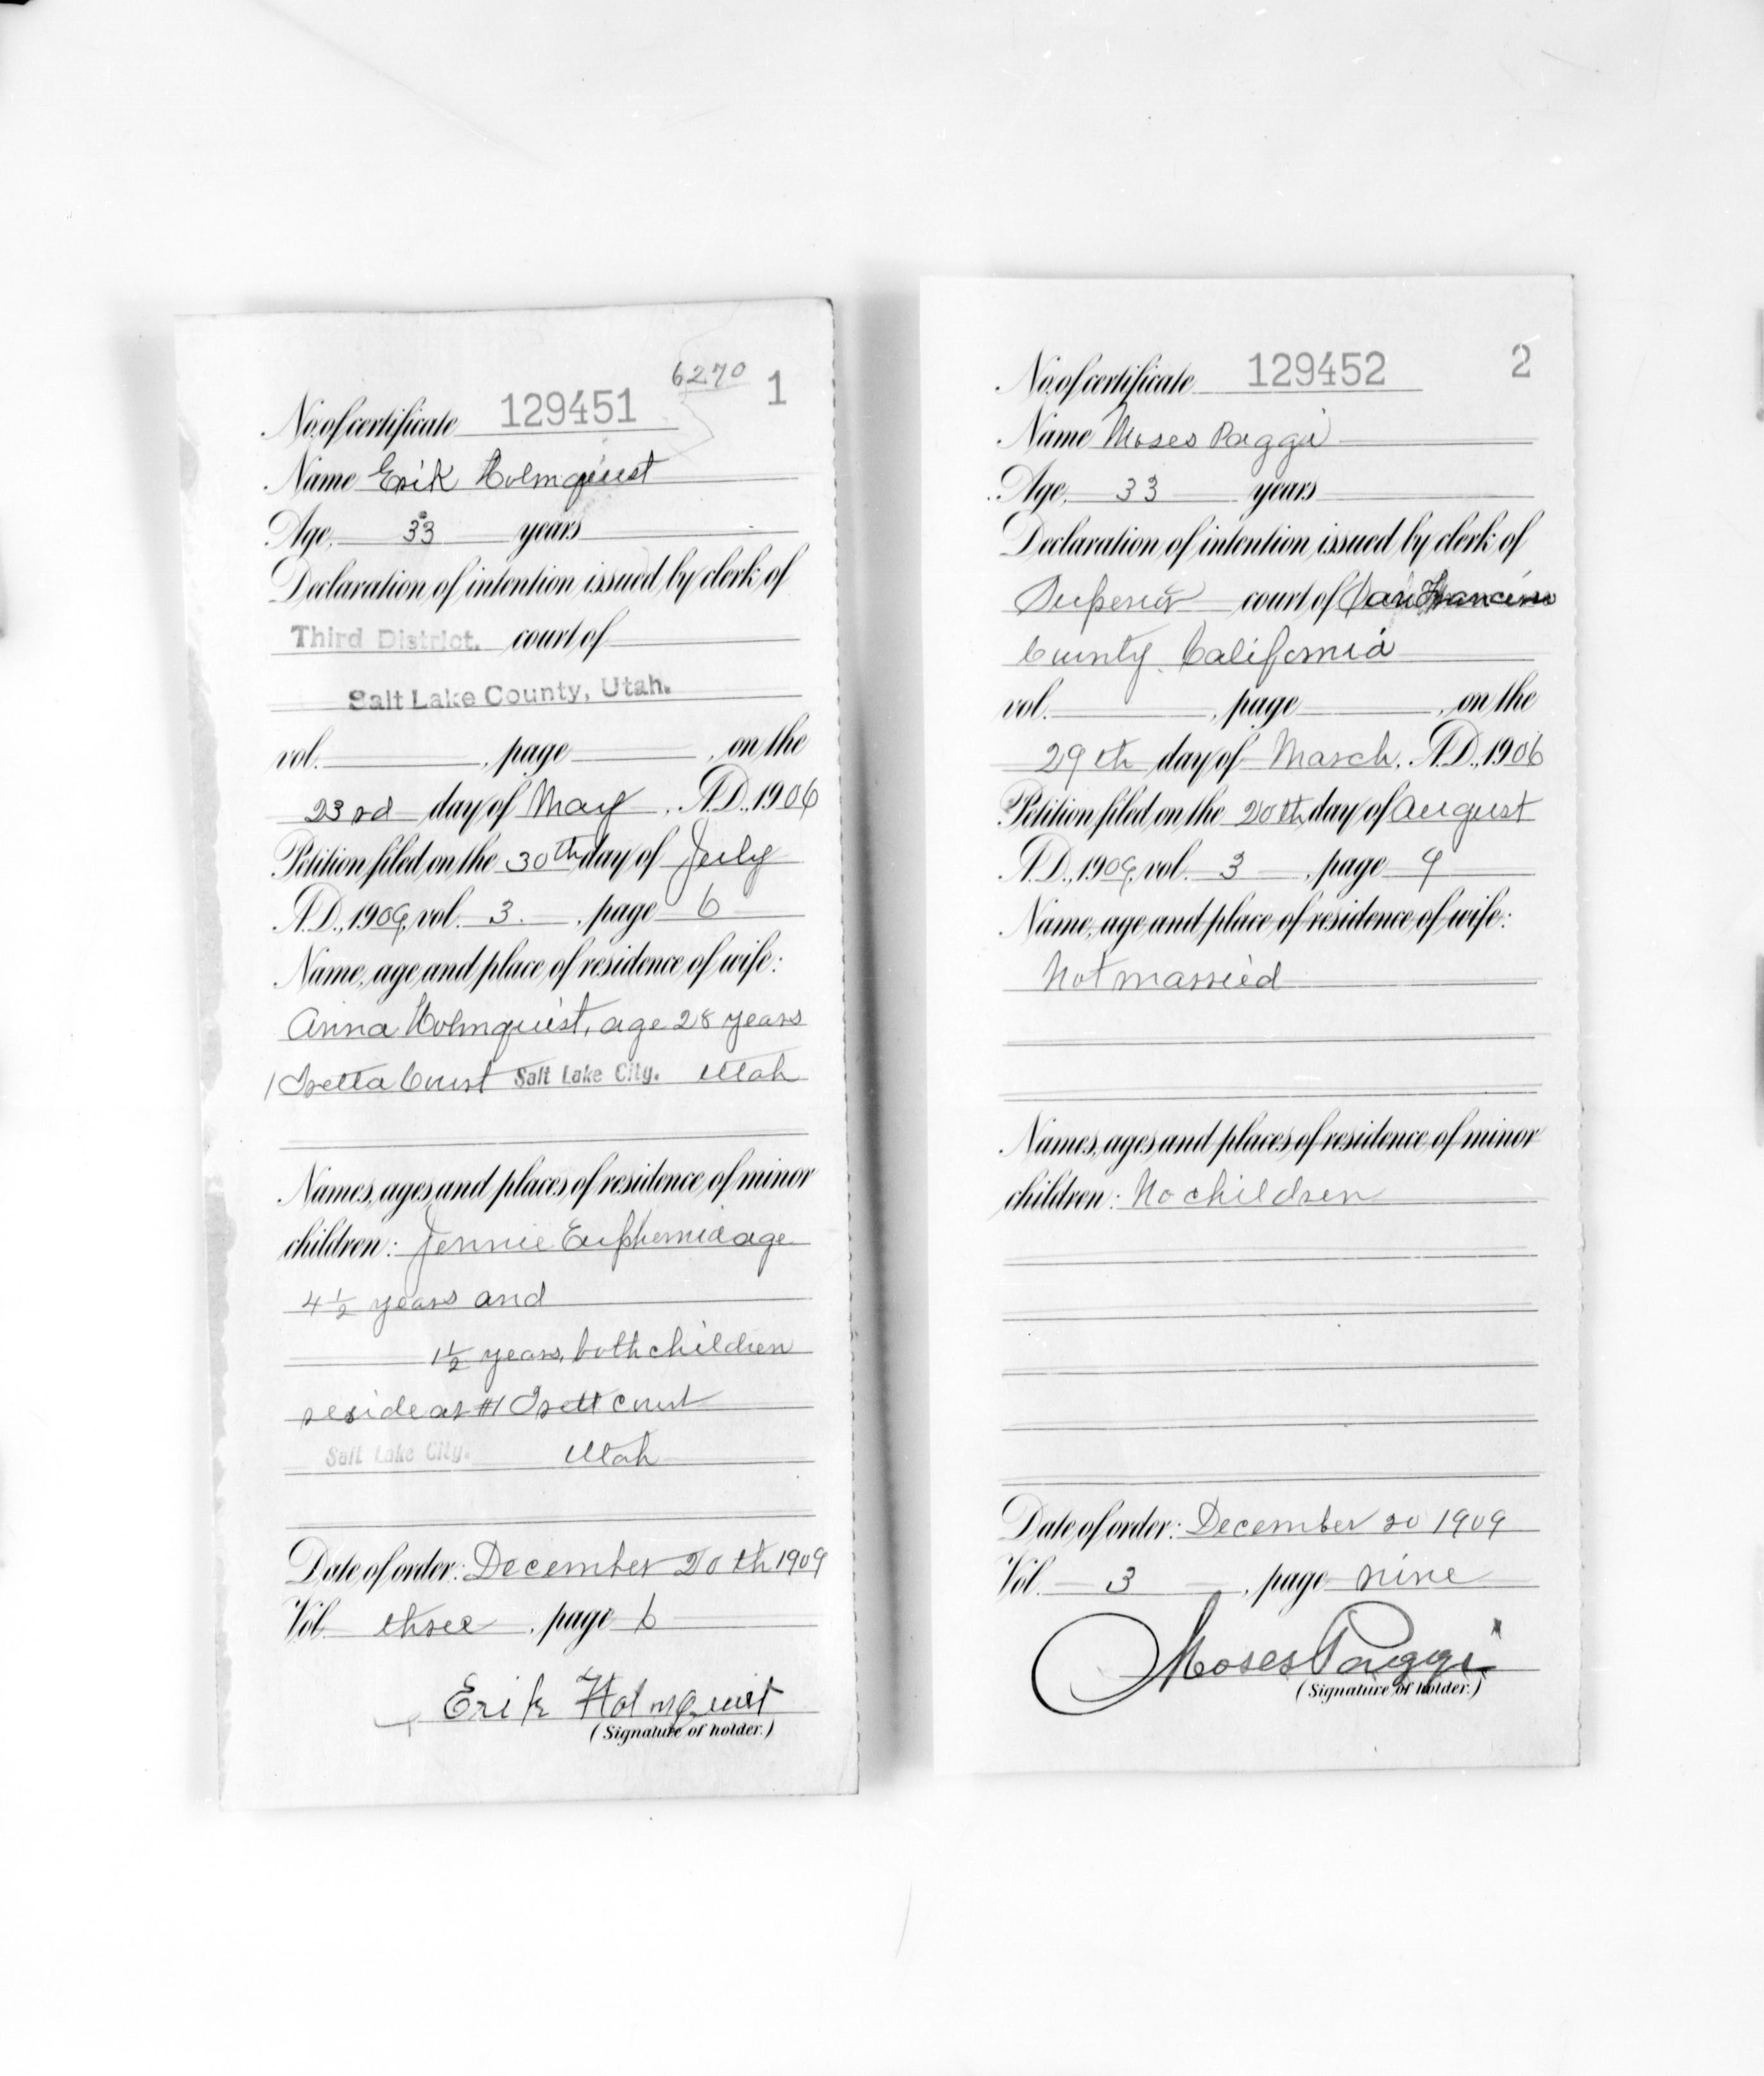 6270
No. of certificate 129451 1
Name Erik Holmquist
Age, 33 years
Declaration of intention issued by clerk of
Third District. court of
Salt Lake County, Utah.
vol. , page , on the
23rd day of May, A.D., 1906
Petition filed on the 30th day of July
A.D., 1909, vol. 3. , page 6
Name, age and place of residence of wife:
Anna Holmquist, age 28 years
1 Court Salt Lake City. Utah
Names, ages and places of residence of minor
children: Jennie Euphemia age
4 1/2 years and
1 1/2 years, both children
reside at #1 Court
Salt Lake City. Utah
Date of order: December 20th 1909
Vol. three , page 6
Erik Holmquist
(Signature of holder.)
No. of certificate 129452 2
Name Moses Paggi
Age, 33 years
Declaration of intention issued by clerk of
Superior court of San Francisco
County, California
vol. , page , on the
29th day of March, A.D., 1906
Petition filed on the 20th day of August
A.D., 1909, vol. 3 , page 9
Name, age and place of residence of wife:
Not married
Names, ages and places of residence of minor
children: No children
Date of order: December 20 1909
Vol. 3 , page nine
Moses Paggi
(Signature of holder.)